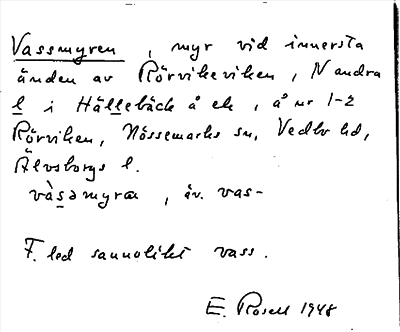 Vassmyren, myr vid innersta
änden av Rörvikeviken, N andra
l i Hällebäck å ek, å nr 1-2
Rörviken, Nössemarks sn, Vedbo hd,
Älvsborgs l.
vàsəmyræ, äv. vas-
F. led sannolikt vass.
E. Rosell 1948